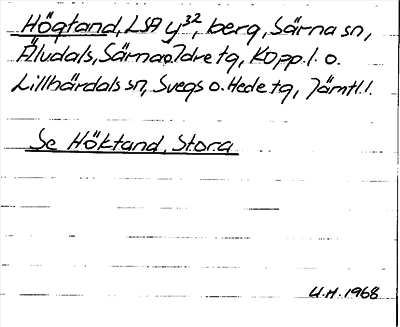 Högtand, LSA y³², berg, Särna sn,
Äludals, Särna o. Idre tg, Kopp. l. o.
Lillhärdals sn, Svegs o. Hede tg, Jämtl. l.
Se Höktand, Stora
U.H. 1968